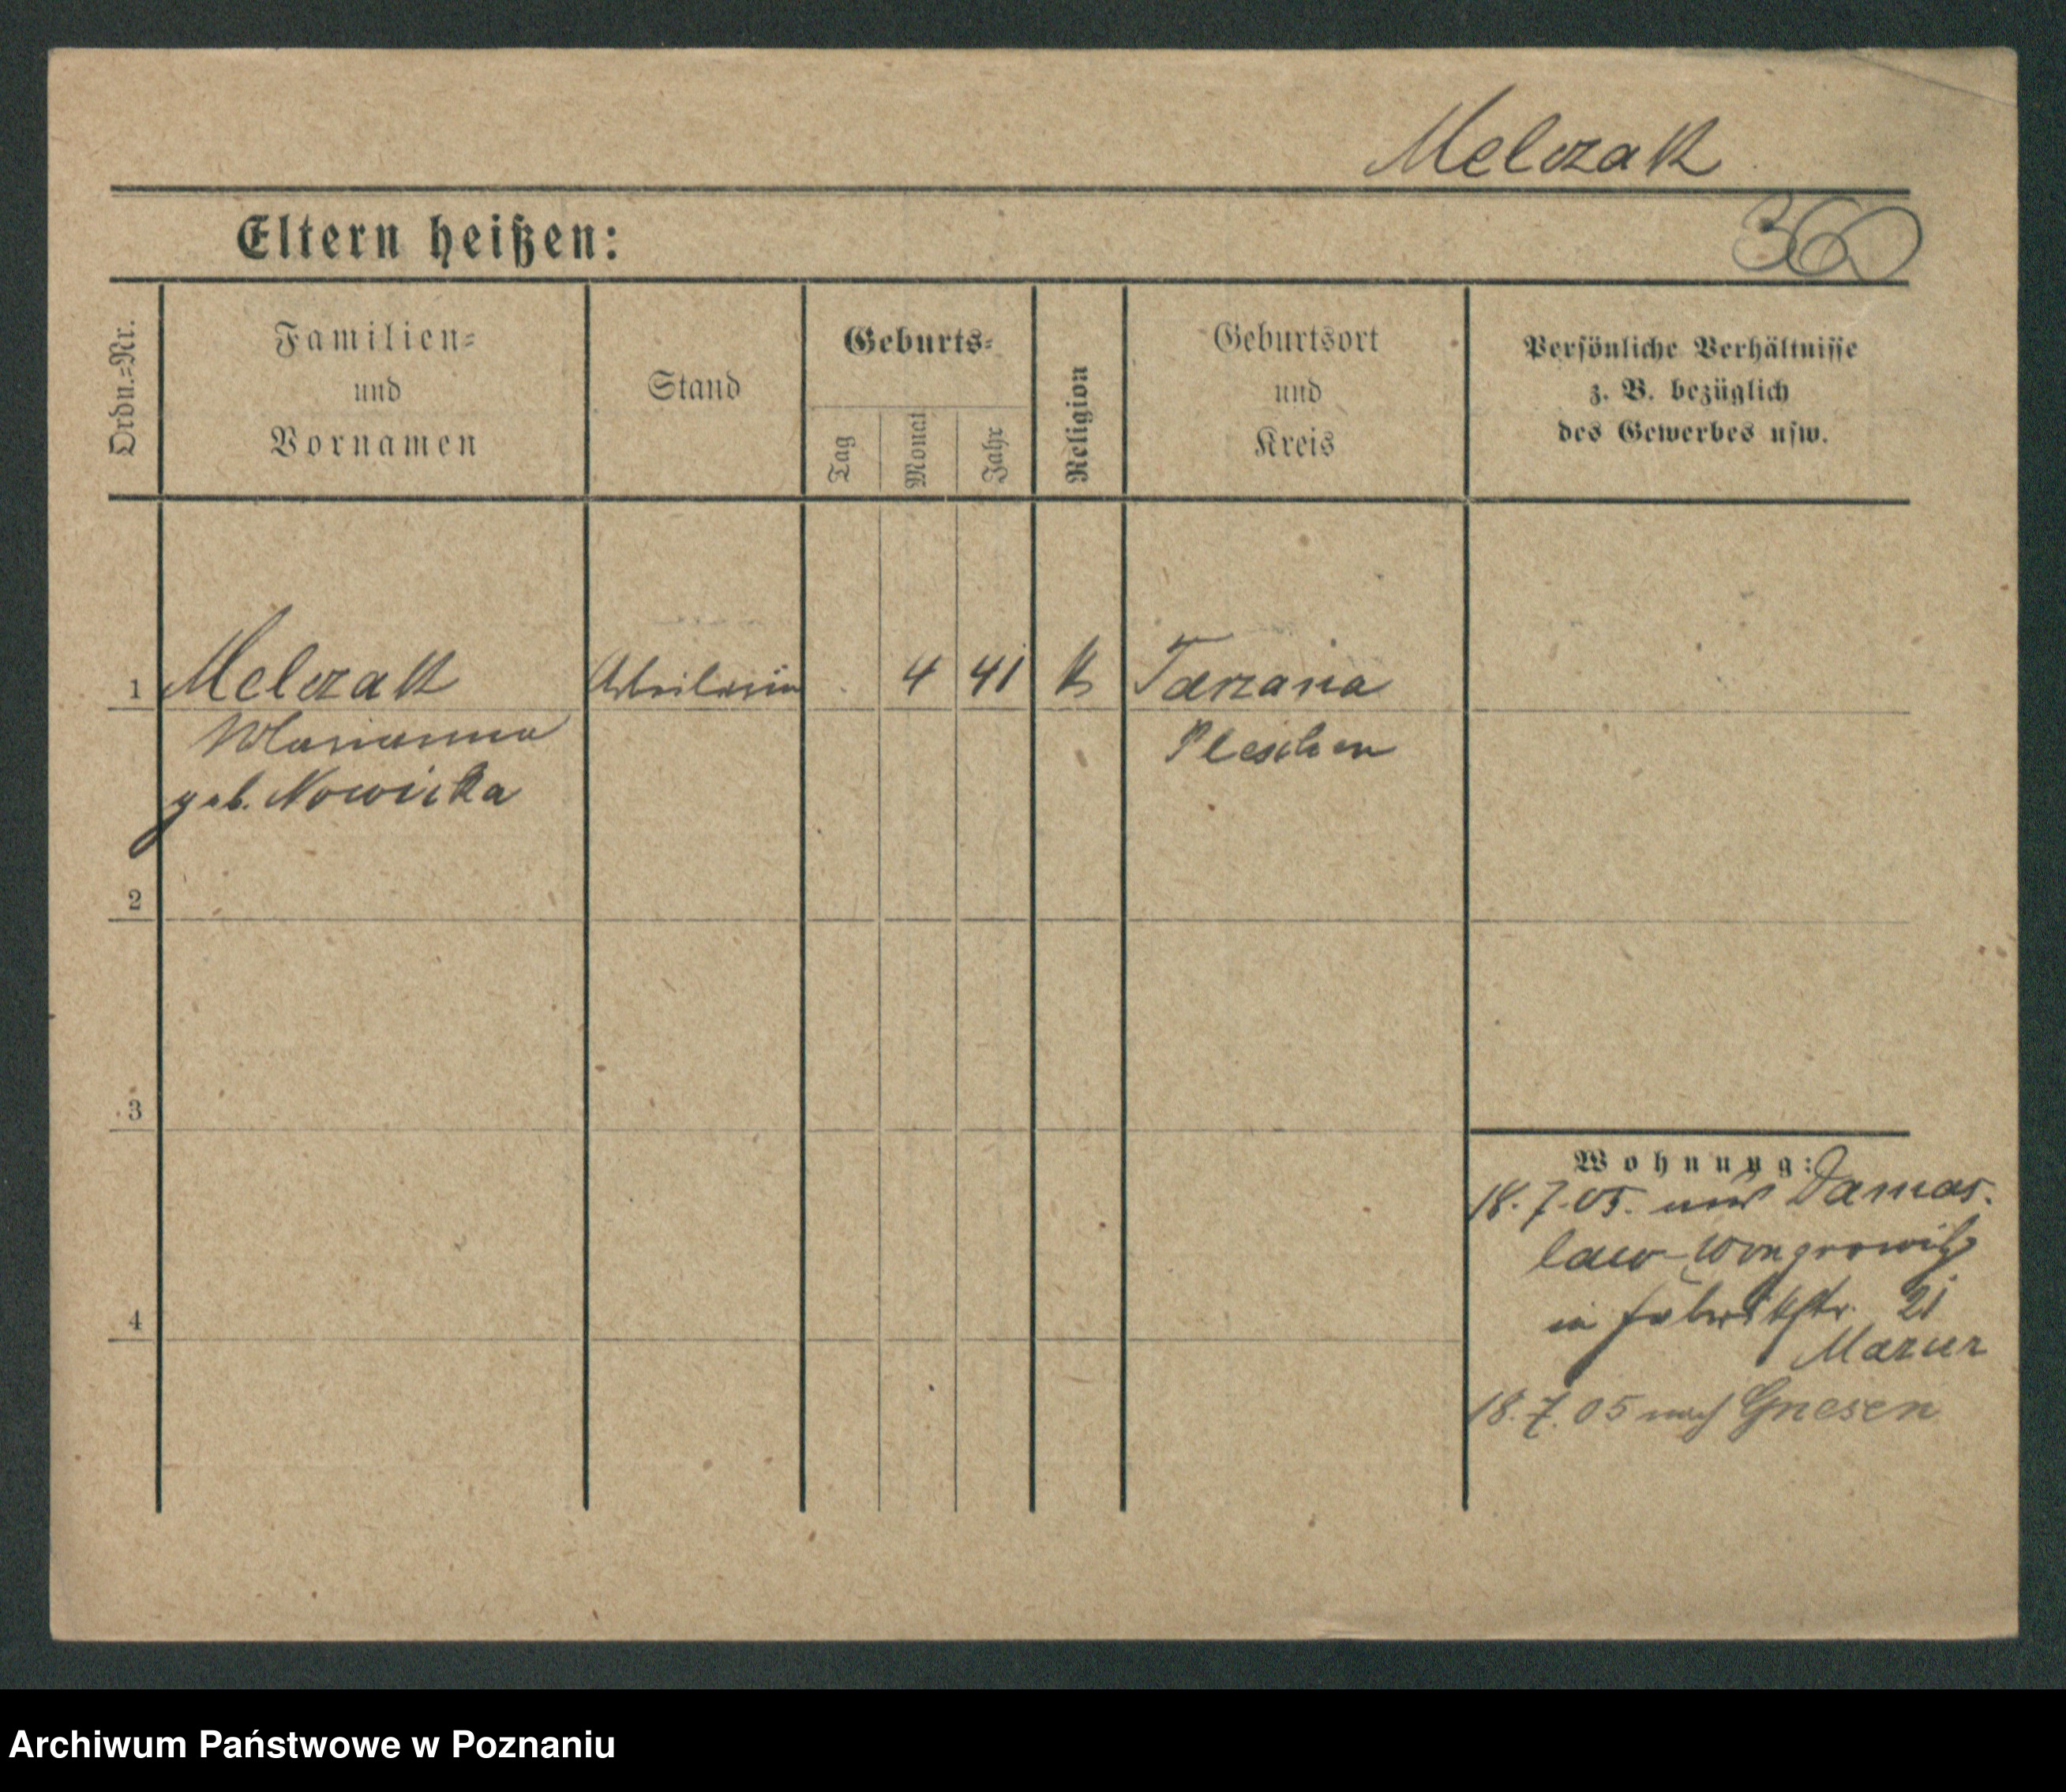 Melczak
360
Eltern heißen:
Ordn.=Nr.
Familien=
und
Vornamen
Stand
Geburts=
Tag
Monat
Jahr
Religion
Geburtsort
und
Kreis
Persönliche Verhältnisse
z. B. bezüglich
des Gewerbes usw.
1 Melczak Arbeiterin 4 41 k
Marianna Pleschen
geb. Nowicka
2
3
4
Wohnung:
18.7.05. aus Damas.
law Wongrowitz
in Fabrikstr. 21
Mazur
18.7.05 nach Gnesen
Archiwum Państwowe w Poznaniu